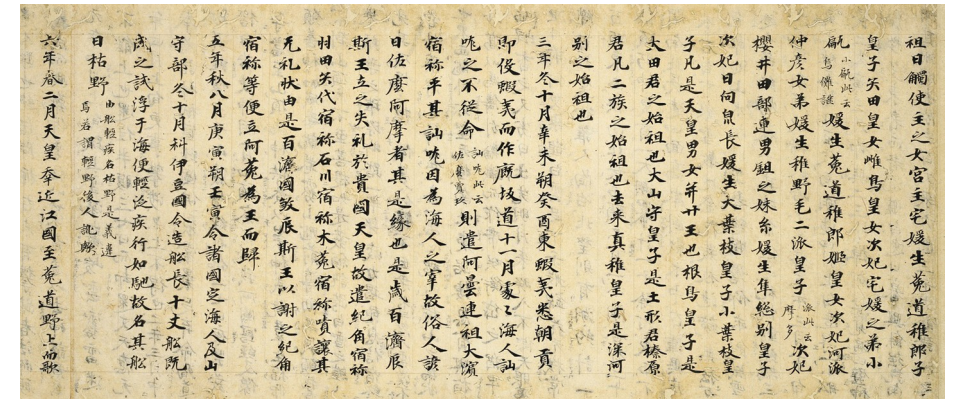 祖日觸使主之女宮主宅媛生菟道稚郎子
皇子矢田皇女雌鳥皇女次妃宅媛之弟小
甂小甂此云烏儺謎媛生菟道稚郎姬皇女次妃河派
仲彦女弟媛生稚野毛二派皇子派此云摩多次妃
櫻井田部連男鉏之妹糸媛生隼総別皇子
次妃日向泉長媛生大葉枝皇子小葉枝皇
子凡是天皇男女并廿王也根鳥皇子是
大田君之始祖也大山守皇子是土形君榛原
君凡二族之始祖也去来真稚皇子是深河
別之始祖也
三年冬十月辛未朔癸酉東蝦夷悉朝貢
即役蝦夷而作厩坂道十一月處々海人訕
哤之不従命訕哤此云佐麼賣玖則遣阿曇連祖大濱
宿祢平其訕哤因為海人之宰故俗人諺
日佐麼阿摩者其是緣也是歳百濟辰
斯王立之失礼於貴國天皇故遣紀角宿祢
羽田矢代宿祢石川宿祢木菟宿祢嘖讓其
无礼状由是百濟國敦辰斯王以謝之紀角
宿祢等便立阿菟為王而歸
五年秋八月庚寅朔壬寅令諸國定海人及山
守部冬十月科伊豆國令造舩長十丈舩既
成之試浮于海便輕泛疾行如馳故名其舩
日枯野由舩輕疾名枯野是義違焉若謂輕野後人訛歟
六年春二月天皇幸近江國至菟道野上而歌